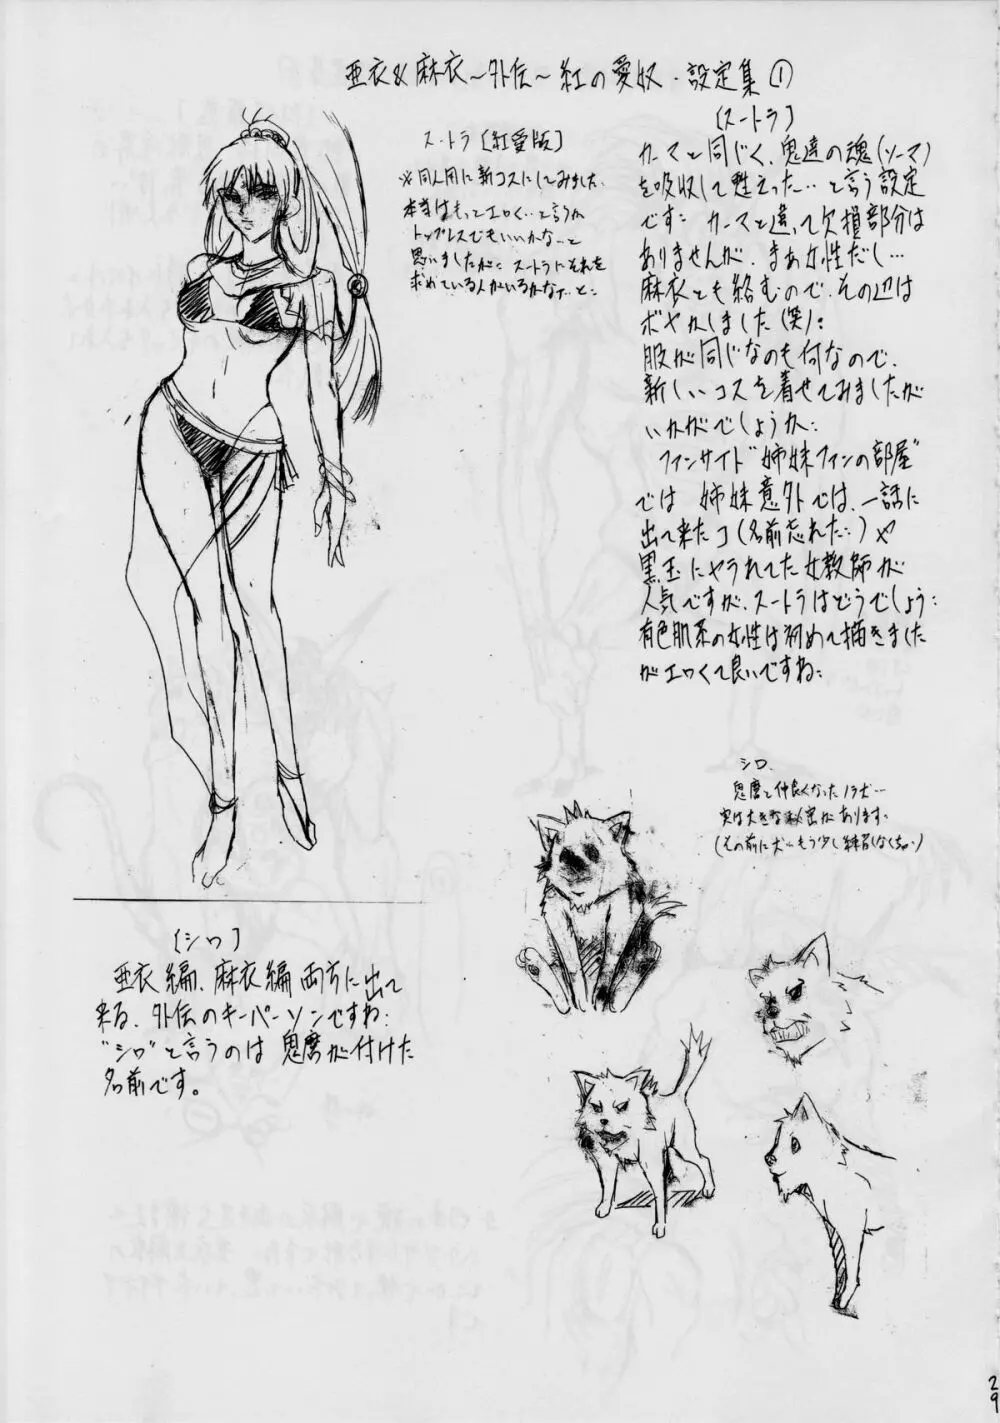 亜衣&麻衣〜外伝〜紅の愛奴・設定集①
スートラ〔紅愛版〕
※同人用に新コスにしてみました、
本当はもっとエロく‥と言うか
トップレスでもいいかな〜と
思いましたが‥スートラにそれを
求めている人がいるかな?‥と‥
〔スートラ〕
カーマと同じく、鬼達の魂(ソーマ)
を吸収して甦えった‥と言う設定
です‥カーマと違って欠損部分は
ありませんが、まあ女性だし…
麻衣とも絡むので、その辺は
ボヤかしました(笑)‥
服が同じなのも何なので、
新しいコスを着せてみましたが
いかがでしょうか‥
ファンサイド"姉妹ファンの部屋"
では 姉妹意外では、一話に
出て来たコ(名前忘れた‥)や
黒玉にヤラれてた女教師が
人気ですが、スートラはどうでしょう‥
有色肌系の女性は初めて描きました
がエロくて良いですね‥
シロ、
鬼麿と仲良くなったノラ犬…
実は大きな秘密があります‥
(その前に犬〜もう少し練習しなくちゃ‥)
〔シロ〕
亜衣編、麻衣編両方に出て
来る、外伝のキーパーソンですね‥
"シロ"と言うのは 鬼麿が付けた
名前です。
29